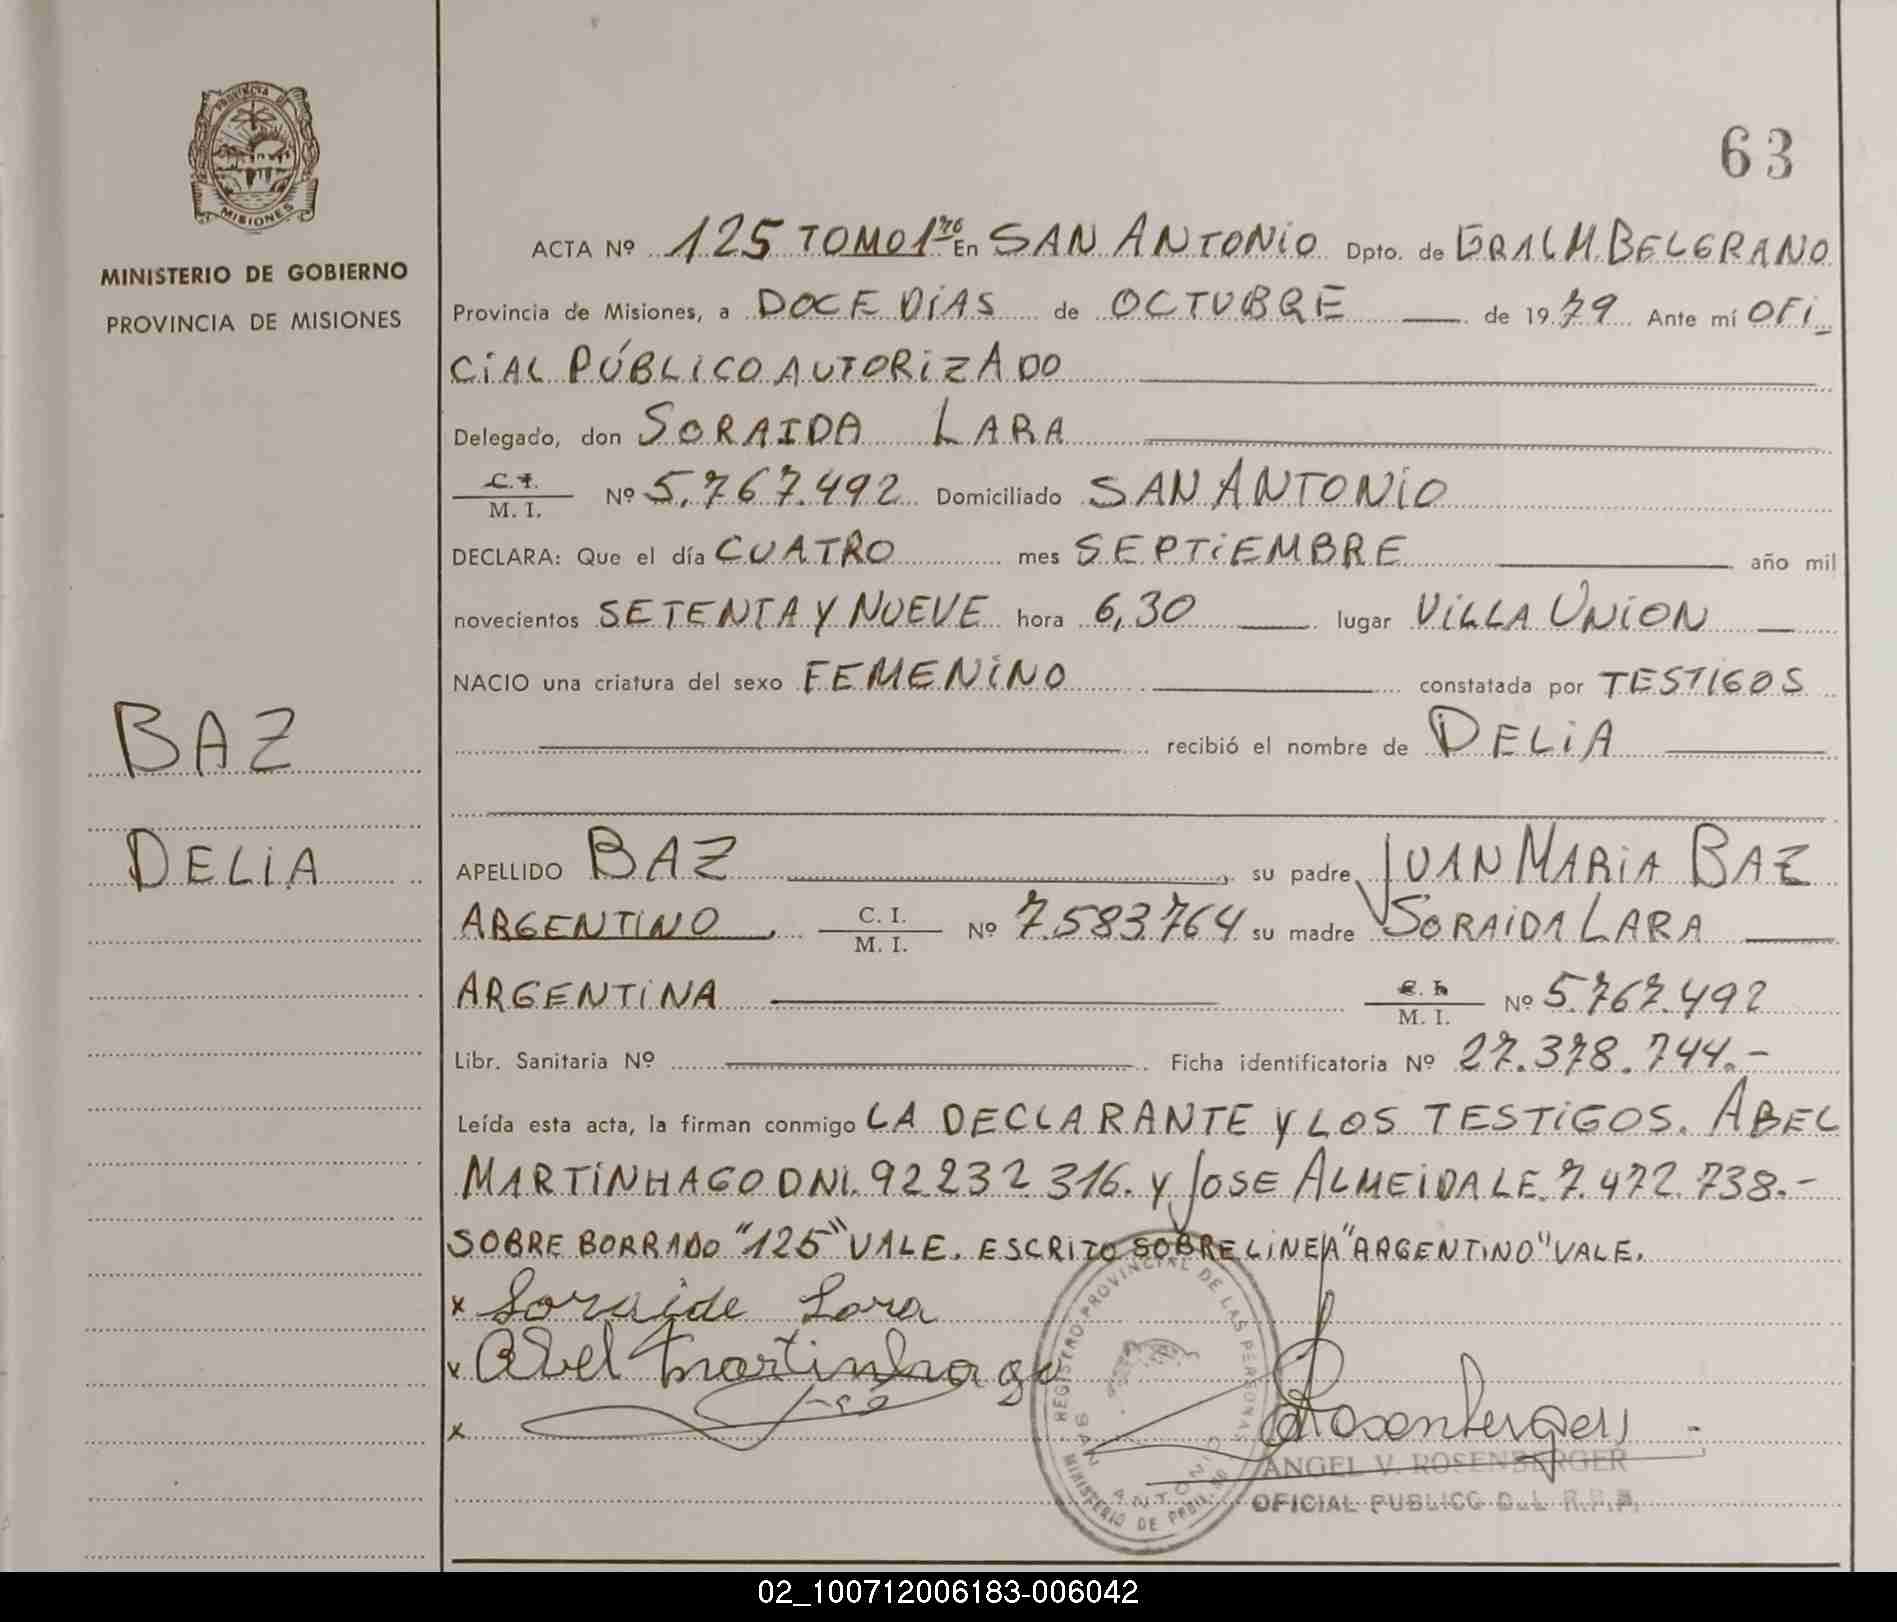 PROVINCIA DE
MISIONES
MINISTERIO DE GOBIERNO
PROVINCIA DE MISIONES
63
ACTA Nº 125 TOMO 1ro En SAN ANTONIO Dpto. de GRAL M. BELGRANO
Provincia de Misiones, a DOCE DÍAS de OCTUBRE de 1979 Ante mí OFI-
CIAL PÚBLICO AUTORIZADO
Delegado, don SORAIDA LARA
C. I.
M. I. Nº 5.767.492 Domiciliado SAN ANTONIO
DECLARA: Que el día CUATRO mes SEPTIEMBRE año mil
novecientos SETENTA Y NUEVE hora 6,30 lugar VILLA UNION
NACIO una criatura del sexo FEMENINO constatada por TESTIGOS
BAZ
recibió el nombre de DELIA
DELIA
APELLIDO BAZ, su padre JUAN MARIA BAZ
ARGENTINO, C. I.
M. I. Nº 7.583.764 su madre SORAIDA LARA
ARGENTINA C. I.
M. I. Nº 5.767.492
Libr. Sanitaria Nº Ficha identificatoria Nº 27.378.744.-
Leída esta acta, la firman conmigo LA DECLARANTE Y LOS TESTIGOS. ABEL
MARTINHAGO DNI. 92.232.316. Y JOSE ALMEIDA LE. 7.472.738.-
SOBRE BORRADO "125" VALE. ESCRITO SOBRE LINEA "ARGENTINO" VALE.
x Soraide Lara
x Abel Martinhago
x José
REGISTRO PROVINCIAL DE LAS PERSONAS
SAN ANTONIO
MINISTERIO DE
Rosenberger
ANGEL V. ROSENBERGER
OFICIAL PUBLICO DEL R.P.P.
02_100712006183-006042